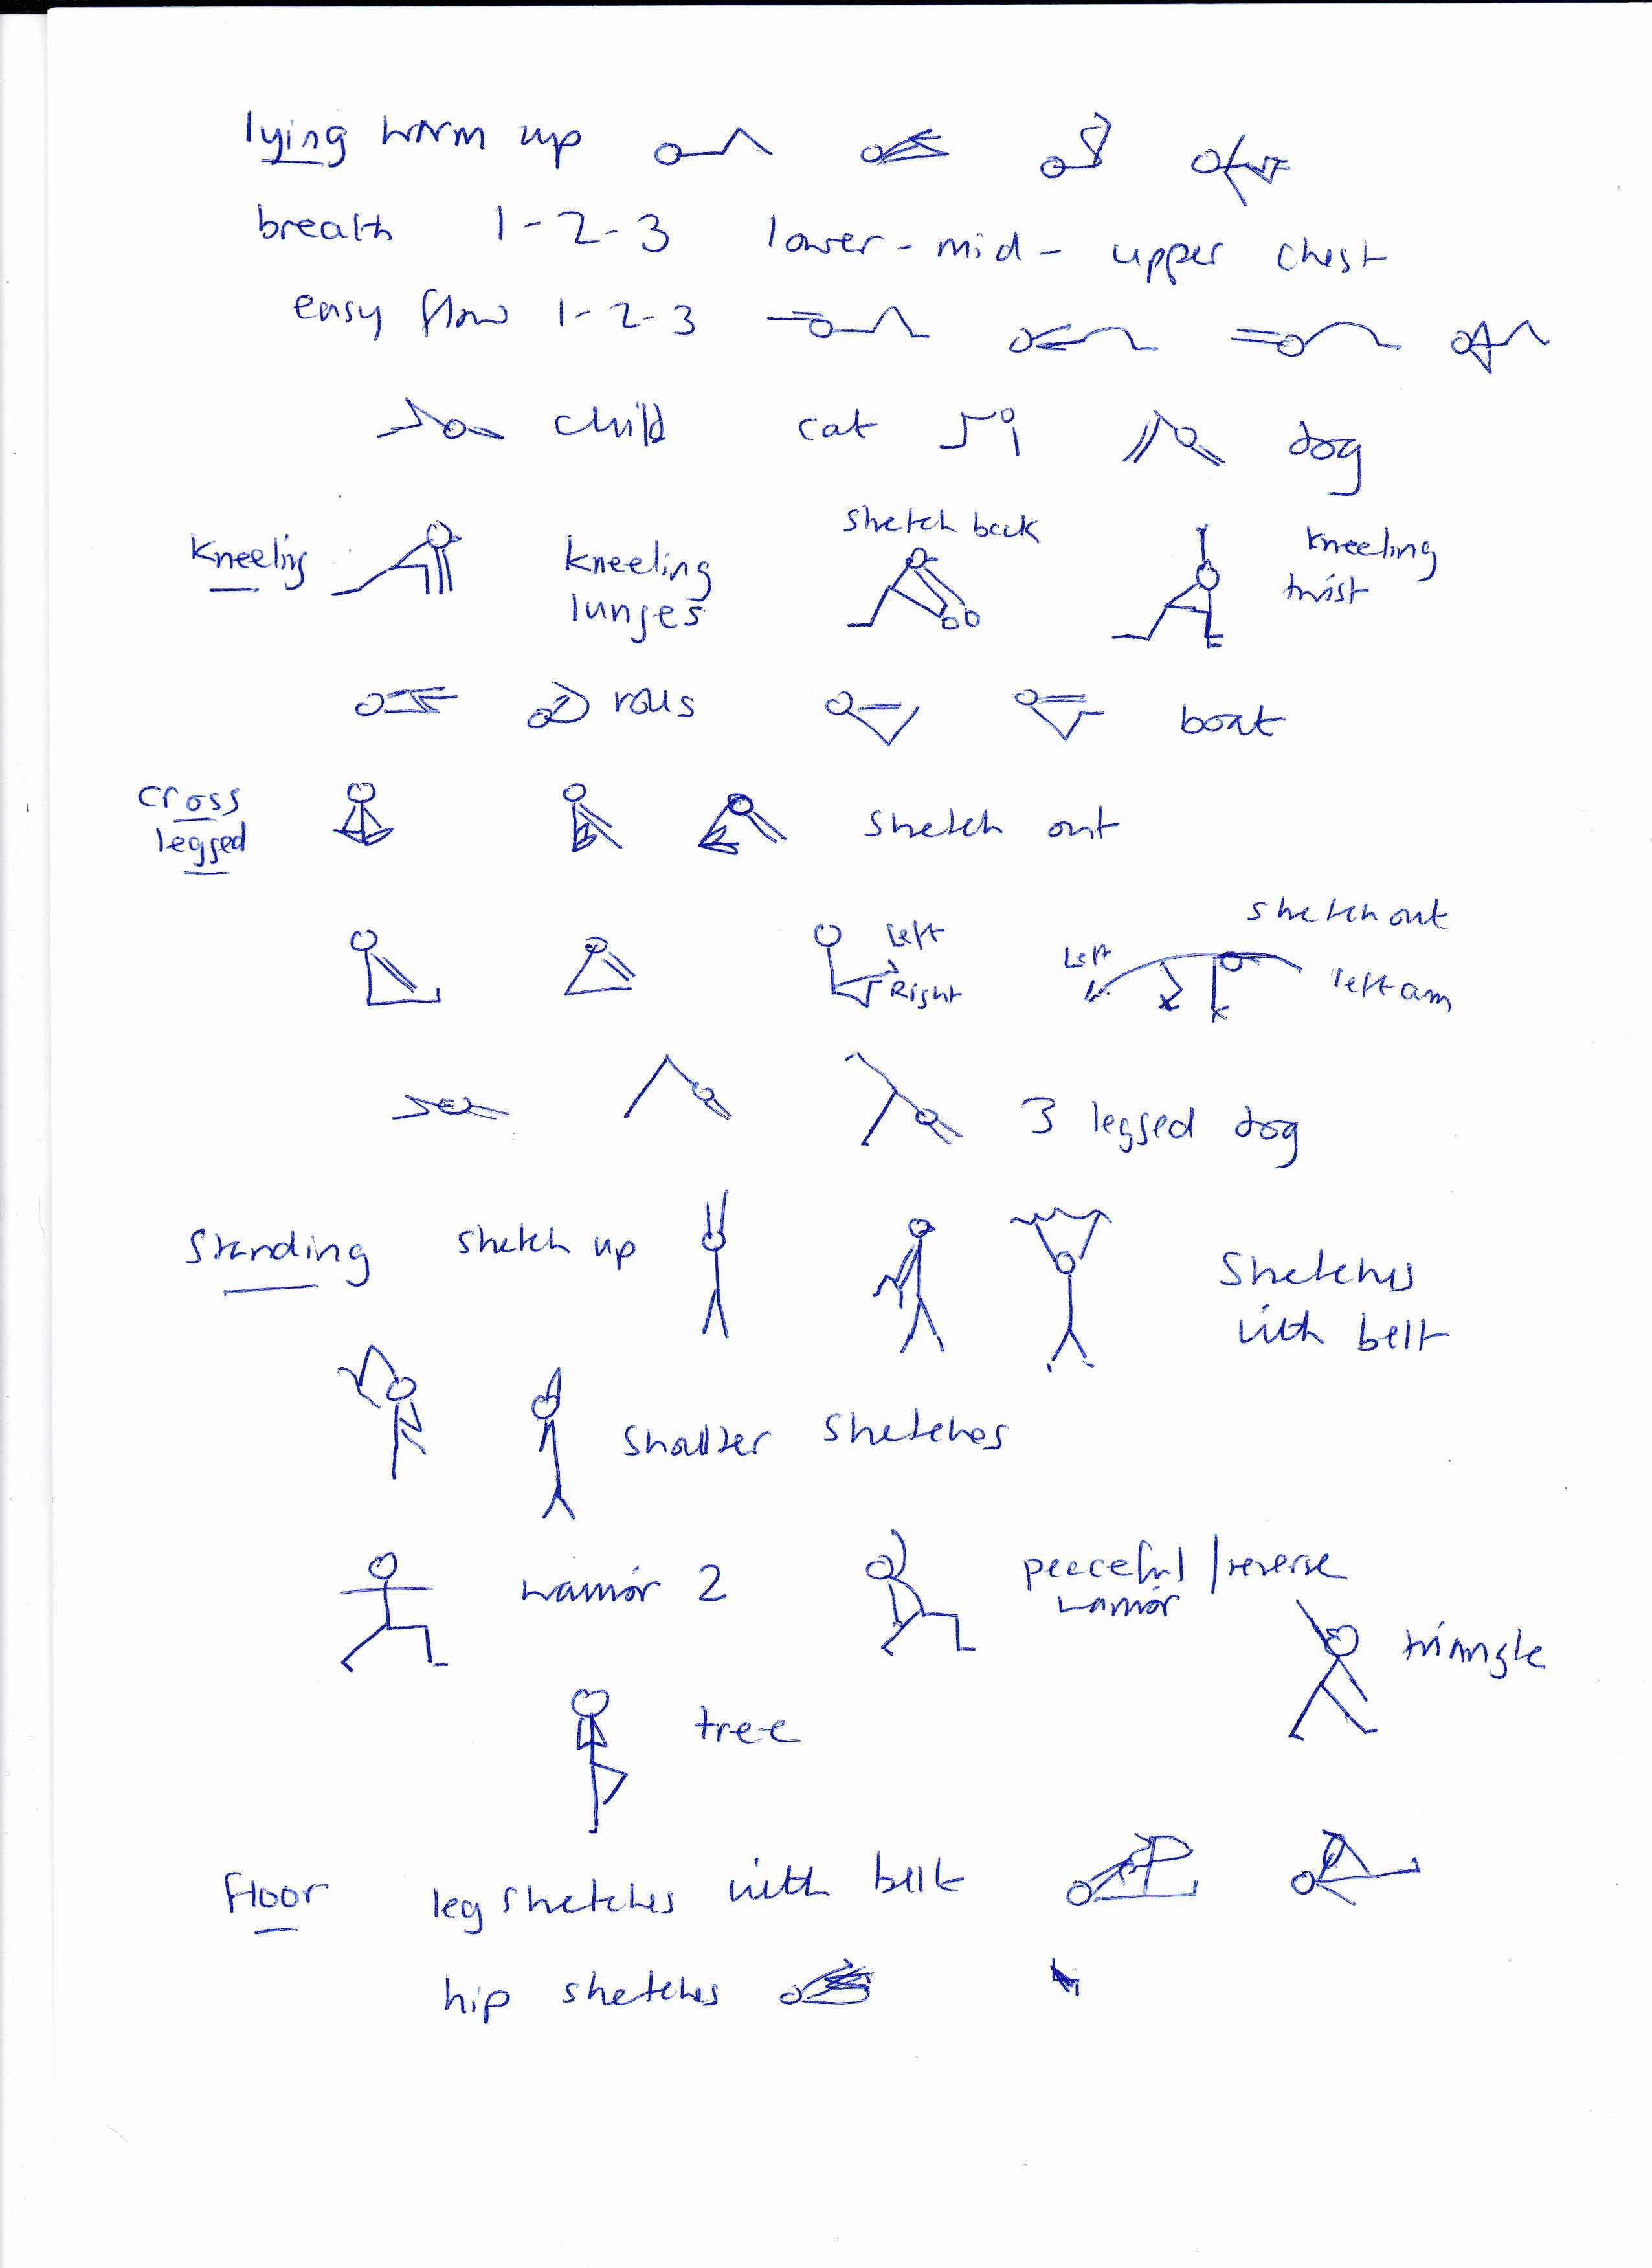 lying warm up
breath 1-2-3 lower - mid - upper chest
easy flow 1-2-3
child cat dog
kneeling kneeling lunges stretch back kneeling twist
rolls boat
cross legged stretch out
Left Right Left stretch out left arm
3 legged dog
Standing stretch up Stretches with belt
Shoulder Stretches
warrior 2 peaceful / reverse warrior triangle
tree
floor leg stretches with belt
hip stretches